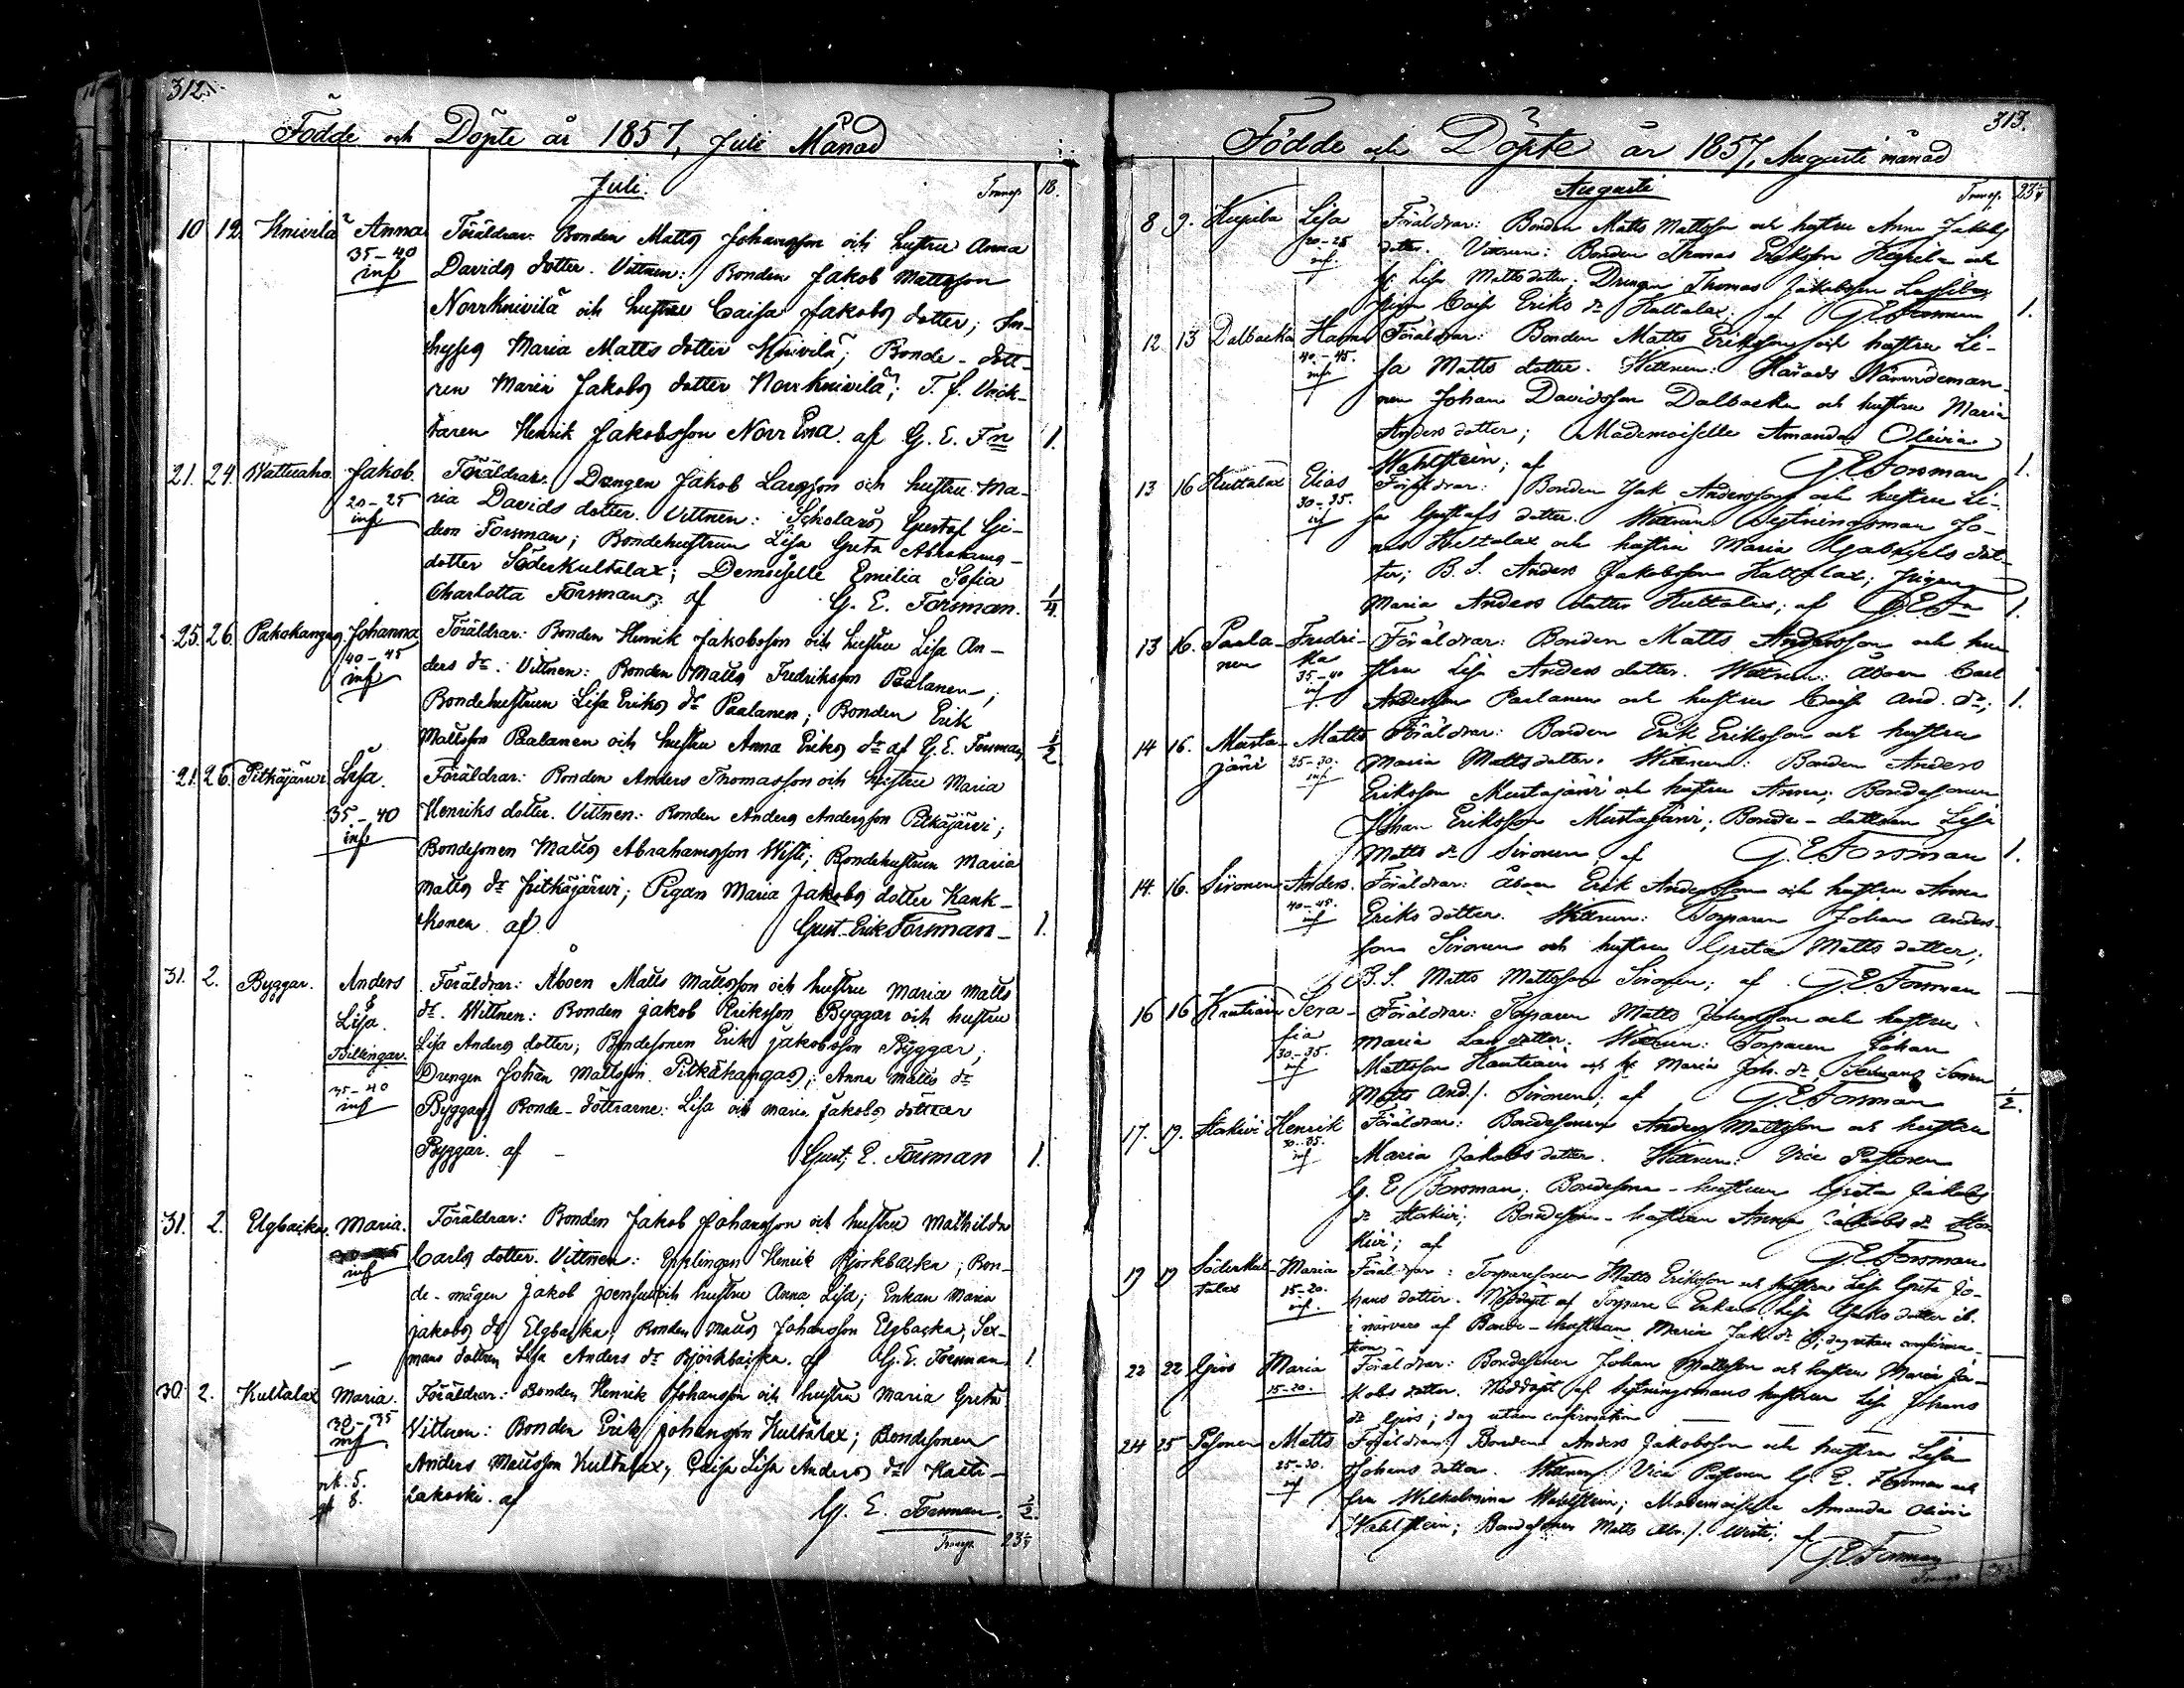 312.
Födde och Döpte år 1857, Juli Månad
Juli.
Transp. 18.
10 12. Knivilä Anna Föräldrar: Bonden Matts Johansson och hustru Anna
35-40 Davids dotter. Vittnen: Bonden Jakob Mattsson
inf Norrknivilä och hustru Caisa Jakobs dotter; In-
hyses Maria Matts dotter Knivilä; Bonde-dott-
ren Maria Jakobs dotter Norrknivilä; T. f.
taren Henrik Jakobsson Norr Ena. af G. E. Fn 1.
21. 24. Wattuaho Jakob. Föräldrar: Drengen Jakob Larsson och hustru Ma-
20-25 ria Davids dotter. Vittnen: Scholaris Gustaf Gi-
inf deon Forsman; Bondehustrun Lisa Greta Abrahams-
dotter Söderkultalax; Demoiselle Emilia Sofia
Charlotta Forsman; af G. E. Forsman. 1/4
25. 26. Pakokangas Johanna Föräldrar: Bonden Henrik Jakobsson och hustru Lisa An-
40-45 ders dr. Vittnen: Bonden Matts Fredriksson Paalanen;
inf Bondehustrun Lisa Eriks dr Paalanen; Bonden Erik
Mattsson Paalanen och hustru Anna Eriks dr af G. E. Forsman 1/2
21. 26. Pitkäjärvi Lisa. Föräldrar: Bonden Anders Thomasson och hustru Maria
35-40 Henriks dotter. Vittnen: Bonden Anders Andersson Pitkäjärvi;
inf Bondesonen Matts Abrahamsson Wisti; Bondehustrun Maria
Matts dr Pitkäjärwi; Pigan Maria Jakobs dotter Kank-
konen af Gust. Erik Forsman 1.
31. 2. Byggar. Anders Föräldrar: Åboen Matts Mattsson och hustru Maria Matts
& dr. Wittnen: Bonden Jakob Eriksson Byggar och hustru
Lisa. Lisa Anders dotter; Bondesonen Erik Jakobsson Byggar;
Tvillingar. Drengen Johan Mattsson Pitkäkangas; Anna Matts dr
35-40 Byggar; Bonde-döttrarne: Lisa och Maria Jakobs döttrar
inf Byggar. af Gust. E. Forsman 1.
31. 2. Elgbacka. Maria. Föräldrar: Bonden Jakob Johansson och hustru Mathilda
inf Carls dotter. Vittnen: Henrik Björkbacka; Bon-
de-mågen Jakob Joensuu och hustru Anna Lisa; Enkan Maria
Jakobs dr Elgbacka; Bonden Matts Johansson Elgbacka; Sex-
mans dottren Lisa Anders dr Björkbacka. af G. E. Forsman 1.
30. 2. Kultalax Maria. Föräldrar: Bonden Henrik Johansson och hustru Maria Greta
30-35 Vittnen: Bonden Erik Johansson Kultalax; Bondesonen
inf Anders Mattsson Kultalax; Caisa Lisa Anders dr Haeti-
mk. 5. lakoski. af G. E. Forsman. 1/2.
qk 8.
Transp. 23 1/4
313.
Födde och Döpte år 1857, Augusti månad
Augusti
Transp. 23 1/4
8 9. Kujala Lisa Föräldrar: Bonden Matts Mattsson och hustru Anna Jakobs
20-25 dotter. Vittnen: Bonden Thomas Eriksson och
inf. h. Lisa Matts dotter; Drengen Thomas Jakobsson
pigan Caisa Eriks dr Kultalax; af G. E. Forsman 1.
12 13 Dalbacka Hanna Föräldrar: Bonden Matts Eriksson och hustru Li-
40-45. sa Matts dotter. Wittnen: Härads Nämndeman-
inf nen Johan Davidsson Dalbacka och hustru Maria
Anders dotter; Mademoiselle Amanda Olivia
Wahlstein; af G. E. Forsman 1.
13 16 Kultalax Elias Föräldrar: Bonden Jak. Andersson och hustru Li-
30-35. sa Gustafs dotter. Wittnen Sytningsman Jo-
inf nas Kultalax och hustru Maria Gabriels dot-
ter; B. S. Anders Jakobsson Kultalax; Pigan
Maria Anders dotter Kultalax; af G. E. Fn 1.
13 16. Paala- Fredri- Föräldrar: Bonden Matts Andersson och hu-
nen ka stru Lisa Anders dotter. Wittnen: Åboen Carl
35-40 Andersson Paalanen och hustru Caisa And. dr; 1.
inf.
14 16. Musta- Matts Föräldrar: Bonden Erik Eriksson och hustru
järvi 25-30. Maria Matts dotter. Wittnen: Bonden Anders
inf Eriksson Mustajärvi och hustru Anna; Bondesonen
Johan Eriksson Mustajärvi; Bonde-dottren Lisa
Matts dr Sironen; af G. E. Forsman 1.
14. 16. Sironen Anders. Föräldrar: Åboen Erik Andersson och hustru Anna
40-45. Eriks dotter. Wittnen: Torparen Johan Anders-
inf son Sironen och hustru Greta Matts dotter;
B. S. Matts Mattsson Sironen; af G. E. Forsman
16 16 Hautiain Sera- Föräldrar: Torparen Matts Johansson och hustru
fia Maria Lars dotter. Wittnen: Torparen Johan
30-35. Mattsson Hautiain och h. Maria Joh. dr Sexmans Sonen
inf Matts And. f. Sironen; af G. E. Forsman 1/2.
17. 19. Stakivi Henrik Föräldrar: Bondesonen Anders Mattsson och hustru
30-35. Maria Jakobs dotter. Wittnen: Vice Pastoren
inf G. E. Forsman; Bondesona-hustrun Greta Jakobs
dr Stakivi; Bondesons-hustrun Anna Jakobs dr Sta-
kivi; af G. E. Forsman
19 19 Söderkul- Maria Föräldrar: Torparesonen Matts Eriksson och hustru Lisa Greta Jo-
talax 15-20. hans dotter. Nöddöpt af Torpare-Enkan Lisa dotter ib.
inf. i närvaro af Bonde-hustrun Maria Jak. dr ib; dog utan confirma-
tion
22 22 Maria Föräldrar: Bondesonen Johan Mattsson och hustru Maria Ja-
15-20. kobs dotter. Nöddöpt af Sytningsmans hustrun Lisa Johans
dr; dog utan confirmation
24 25 Pesonen Matts Föräldrar: Bonden Anders Jakobsson och hustru Lisa
25-30. Johans dotter. Wittnen: Vice Pastoren G. E. Forsman och
inf fru Wilhelmina Wahlstein; Mademoiselle Amanda Olivia
Wahlstein; Bondesonen Matts Abr. f. Wisti; af
G. E. Forsman
Transp.